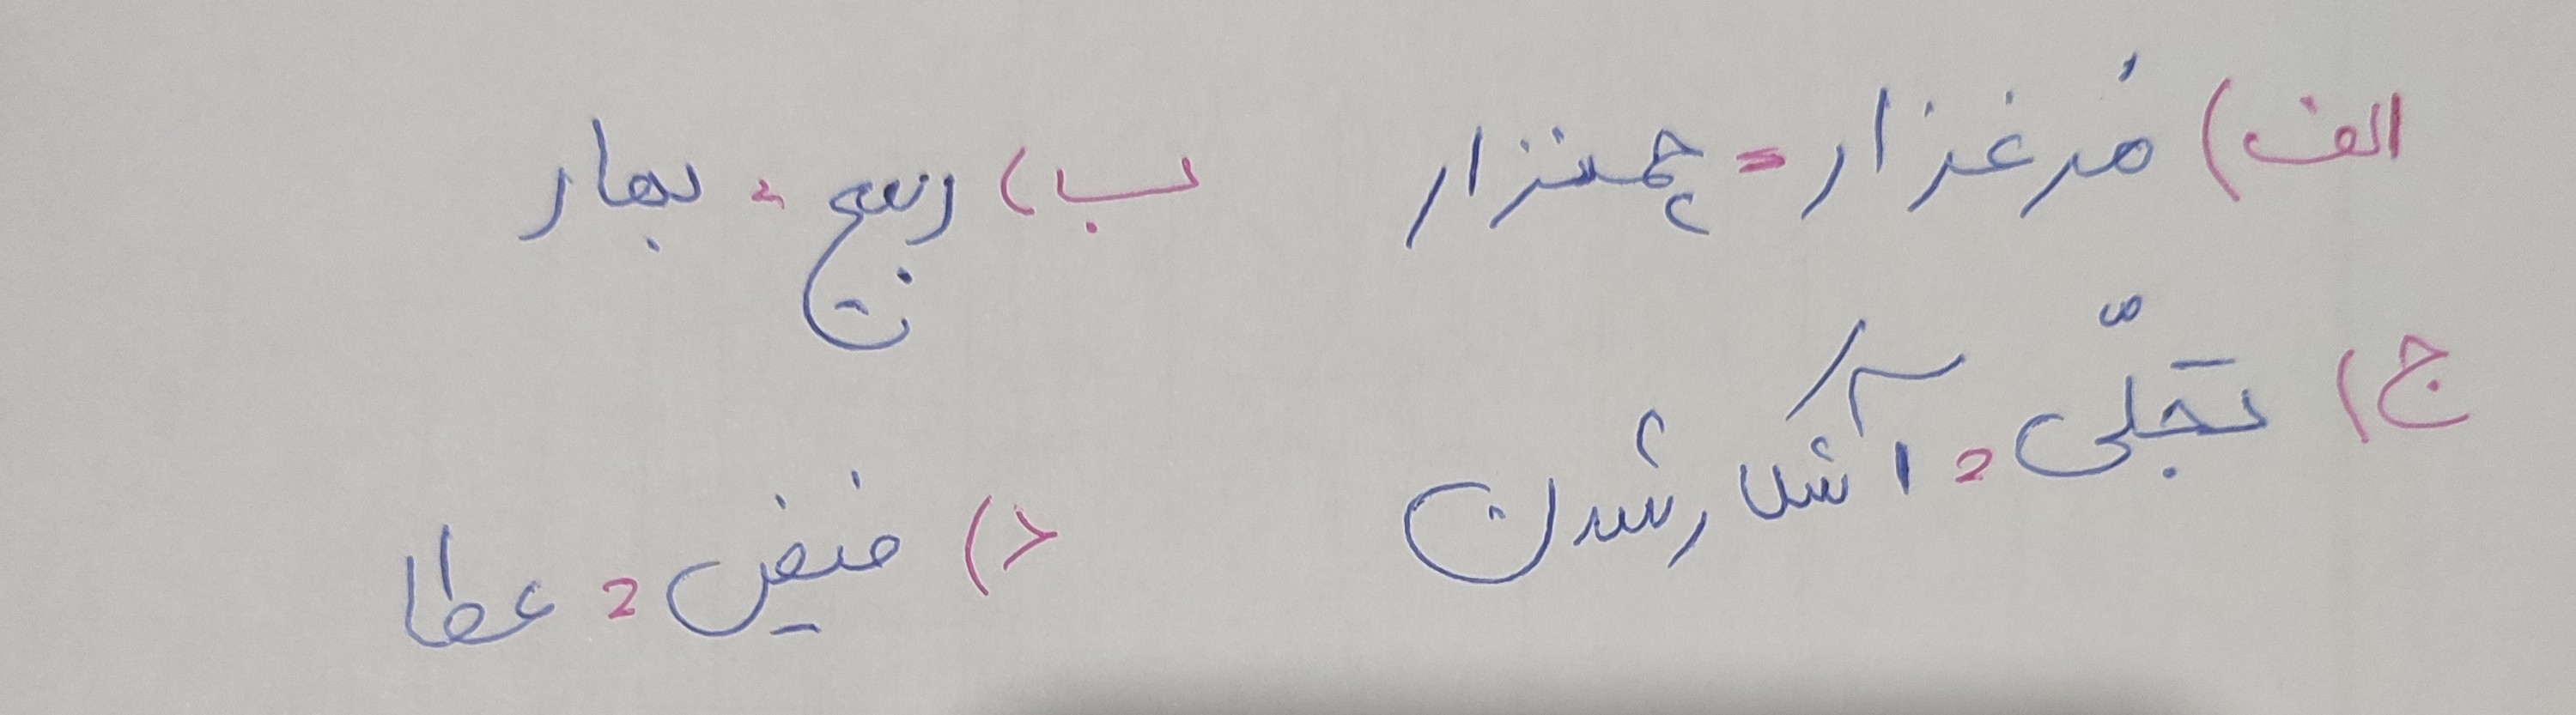 الف) مُرغزار = چمنزار ب) ربیع = بهار
ج) تجلّی = آشکار شدن
د) فیض = عطا